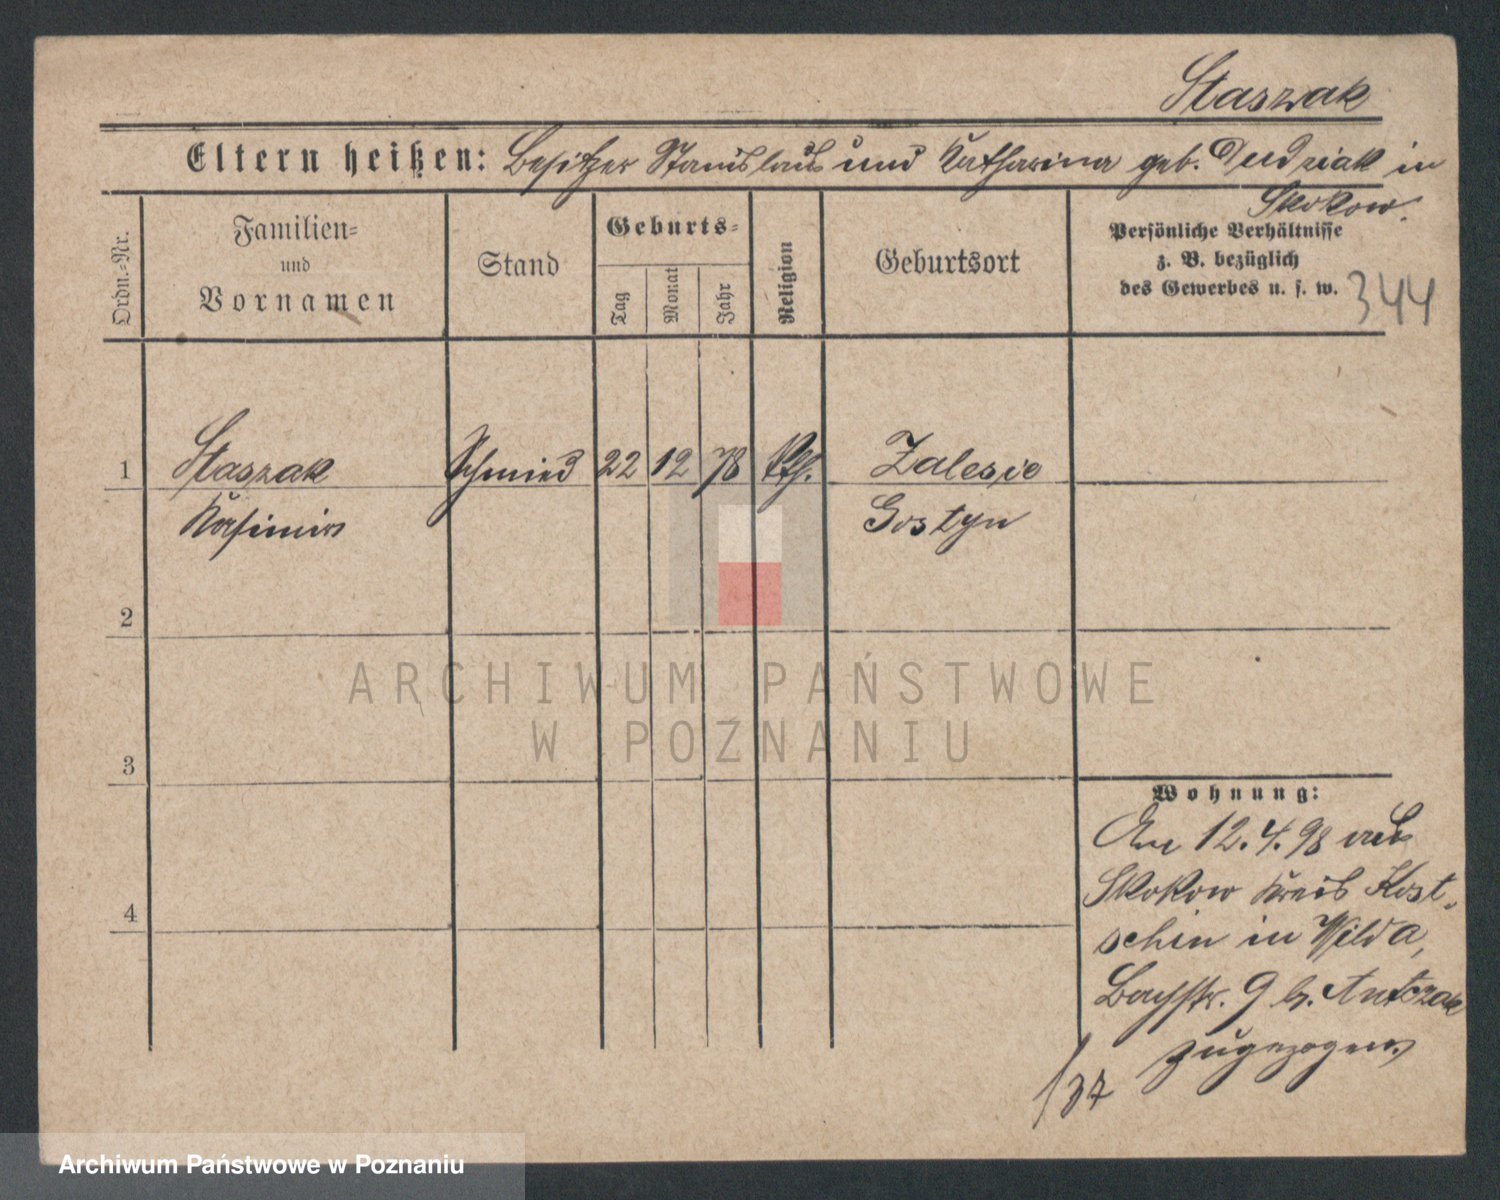 Staszak
Eltern heißen: Besitzer Stanislaus und Katharina geb. Dudziak in
Skokow.
Ordn.-Nr.
Familien-
und
Vornamen
Stand
Geburts-
Tag
Monat
Jahr
Religion
Geburtsort
Persönliche Verhältnisse
z. B. bezüglich
des Gewerbes u. s. w.
344
1 Staszak Schmied 22 12 78 Kth. Zalesie
Kasimir Gostyn
2
3
4
Wohnung:
Am 12.4.98 aus
Skokow Kreis Kost-
schin in Wilda,
Bachstr. 9 b. Antczak
zugezogen
ARCHIWUM PAŃSTWOWE
W POZNANIU
Archiwum Państwowe w Poznaniu